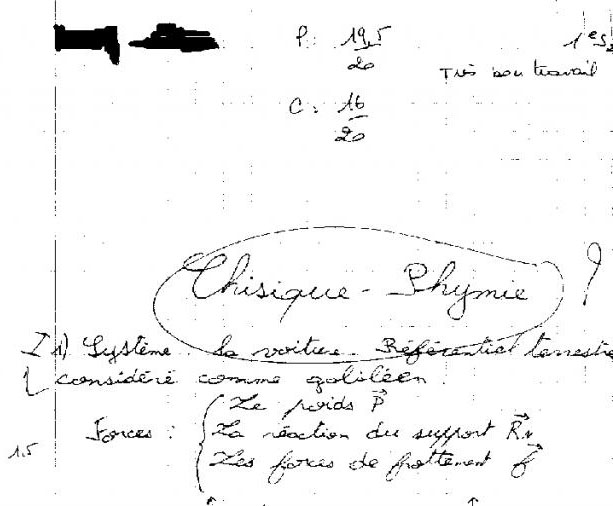 P: 19,5/20
1eS2
Très bon travail
C: 16/20
Chisique - Phymie ?
I 1) Système : la voiture. Référentiel terrestre
1 considéré comme galiléen.
Forces : Le poids P⃗
La réaction du support R⃗N
1.5 Les forces de frottement f⃗